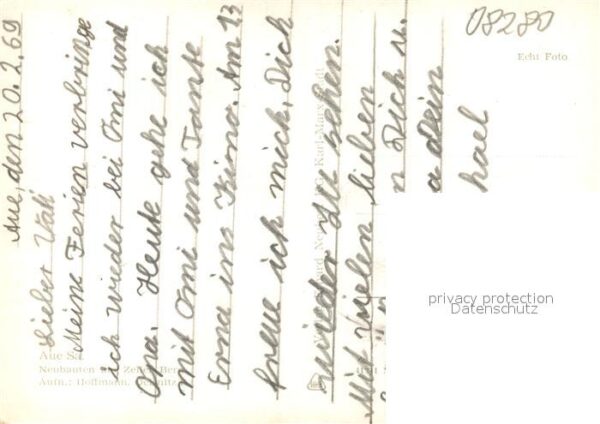 Aue, den 20.2.69
Lieber Vati
Meine Ferien verbringe
ich wieder bei Omi und
Opa. Heute gehe ich
mit Omi und Tante
Erna ins Kino. Am 13
freue ich mich, Dich
wieder zu sehen.
Mit vielen lieben
Dich u.
dein
hael
08280
Echt Foto
Aue Sa.
Neubauten
Aufn.: Hoffmann,
Karl-Marx-Stadt
privacy protection
Datenschutz